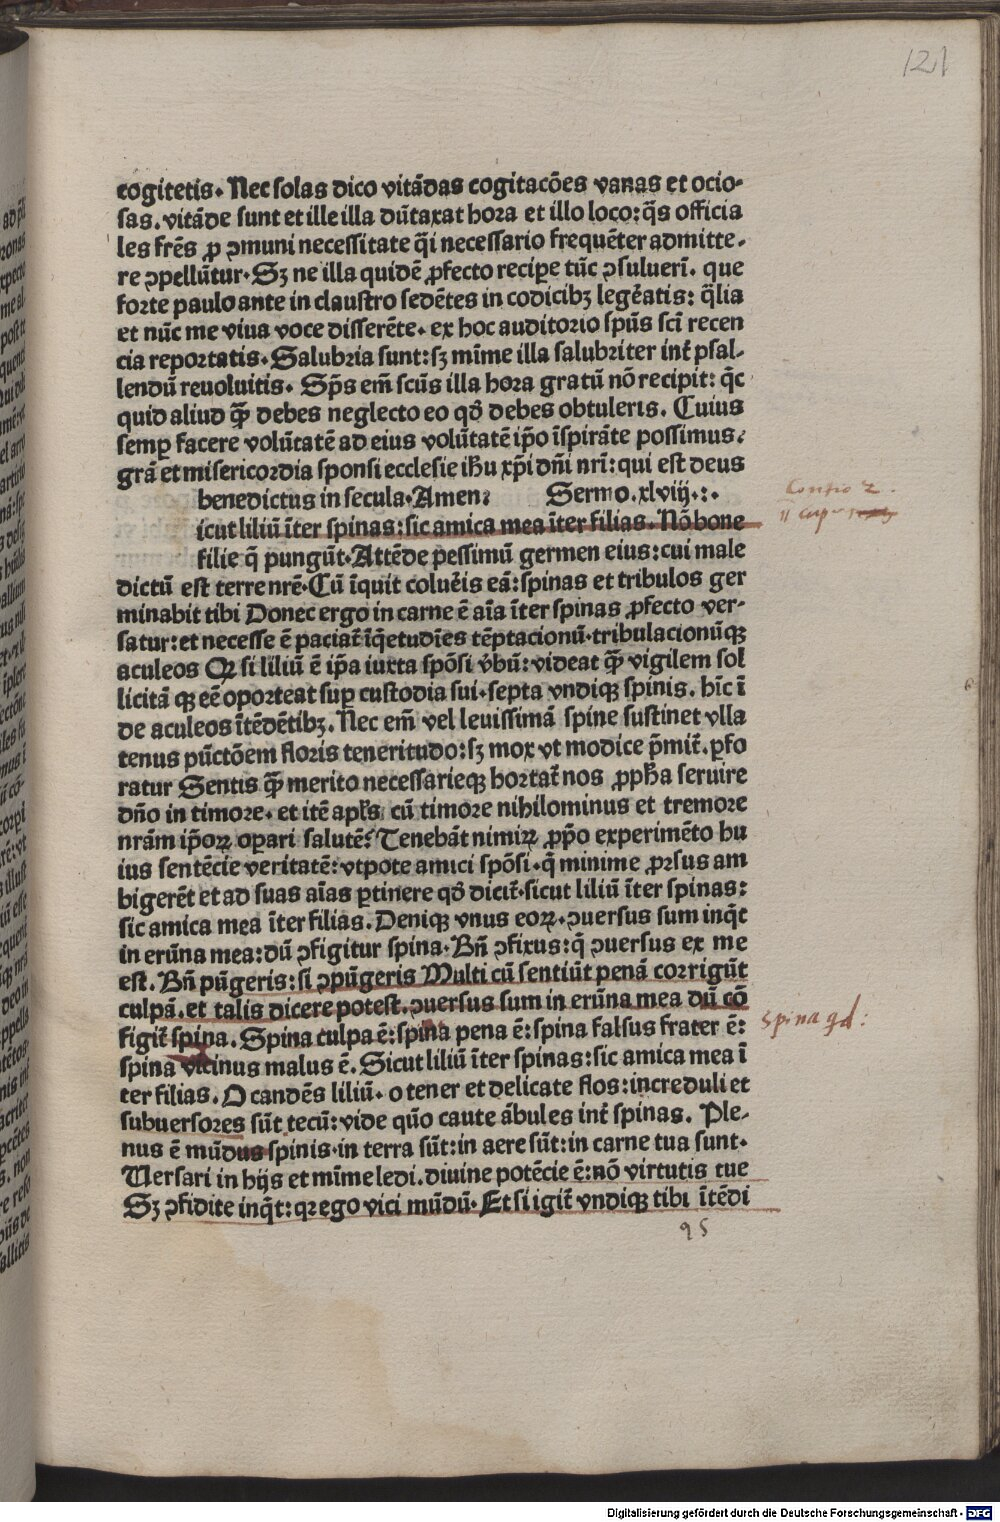 121
cogitetis. Nec solas dico vitādas cogitacōes vanas et ocio-
sas. vitāde sunt et ille illa dūtaxat hora et illo loco: q̄s officia
les frēs ꝓ ꝯmuni necessitate q̄i necessario frequēter admitte.
re ꝯpellūtur. Sꝫ ne illa quidē ꝓfecto recipe tūc ꝯsuluerī. que
forte paulo ante in claustro sedētes in codicibꝫ legēatis: q̄lia
et nūc me viua voce disserēte. ex hoc auditorio spūs scī recen
cia reportatis. Salubria sunt: sꝫ mīme illa salubriter inť psal-
lendū reuoluitis. Sp̄s em̄ scūs illa hora gratū nō recipit: q̄c
quid aliud q̄ꝫ debes neglecto eo qd̄ debes obtuleris. Cuius
semꝑ facere volūtatē ad eius volūtatē ip̄o īspirāte possimus.
grā et misericordia sponsi ecclesie ihū xp̄i dn̄i nr̄i: qui est deus
benedictus in secula. Amen. Sermo. xlviij. : .
icut liliū īter spinas: sic amica mea īter filias. Nō bone
filie q̄ pungūt. Attēde pessimū germen eius: cui male
dictū est terre nrē. Cū īquit coluēis eā: spinas et tribulos ger
minabit tibi Donec ergo in carne ē aīa īter spinas ꝓfecto ver-
satur: et necesse ē paciať īq̄etudīes tēptacionū. tribulacionūqꝫ
aculeos Qꝛ si liliū ē ip̄a iuxta spōsi v̄bū: videat q̄ꝫ vigilem sol
licitā qꝫ eē oporteat suꝑ custodia sui. septa vndiqꝫ spinis. hīc ī
de aculeos ītēdētibꝫ. Nec em̄ vel leuissimā spine sustinet vlla
tenus pūctōem floris teneritudo: sꝫ mox vt modice p̄miť. ꝑfo
ratur Sentis q̄ꝫ merito necessarieqꝫ hortať nos ꝓpħa seruire
dn̄o in timore. et itē apl̄s cū timore nihilominus et tremore
nrām ip̄oꝝ oꝑari salutē. Tenebāt nimiꝝ ꝓp̄o experimēto hu
ius sentēcie veritatē: vtpote amici spōsi. q̄ minime ꝓrsus am
bigerēt et ad suas aīas ꝑtinere qd̄ diciť. sicut liliū īter spinas:
sic amica mea īter filias. Deniqꝫ vnus eoꝝ. ꝯuersus sum inq̄t
in erūna mea: dū ꝯfigitur spina. Bn̄ ꝯfixus: q̄ ꝯuersus ex me
est. Bn̄ pūgeris: si ꝯpūgeris Multi cū sentiūt penā corrigūt
culpā. et talis dicere potest. ꝯuersus sum in erūna mea dū cō
figiť spina. Spina culpa ē: spina pena ē: spina falsus frater ē:
spina vicinus malus ē. Sicut liliū īter spinas: sic amica mea ī
ter filias. O candēs liliū. o tener et delicate flos: increduli et
subuersores sūt tecū: vide quō caute ābules inť spinas. Ple-
nus ē mūdus spinis. in terra sūt: in aere sūt: in carne tua sunt.
Uersari in hijs et mīme ledi. diuine potēcie ē: nō virtutis tue
Sꝫ ꝯfidite inq̄t: qꝛ ego vici mūdū. Et si igiť vndiqꝫ tibi ītēdi
Spina qd:
q 5
Digitalisierung gefördert durch die Deutsche Forschungsgemeinschaft - DFG